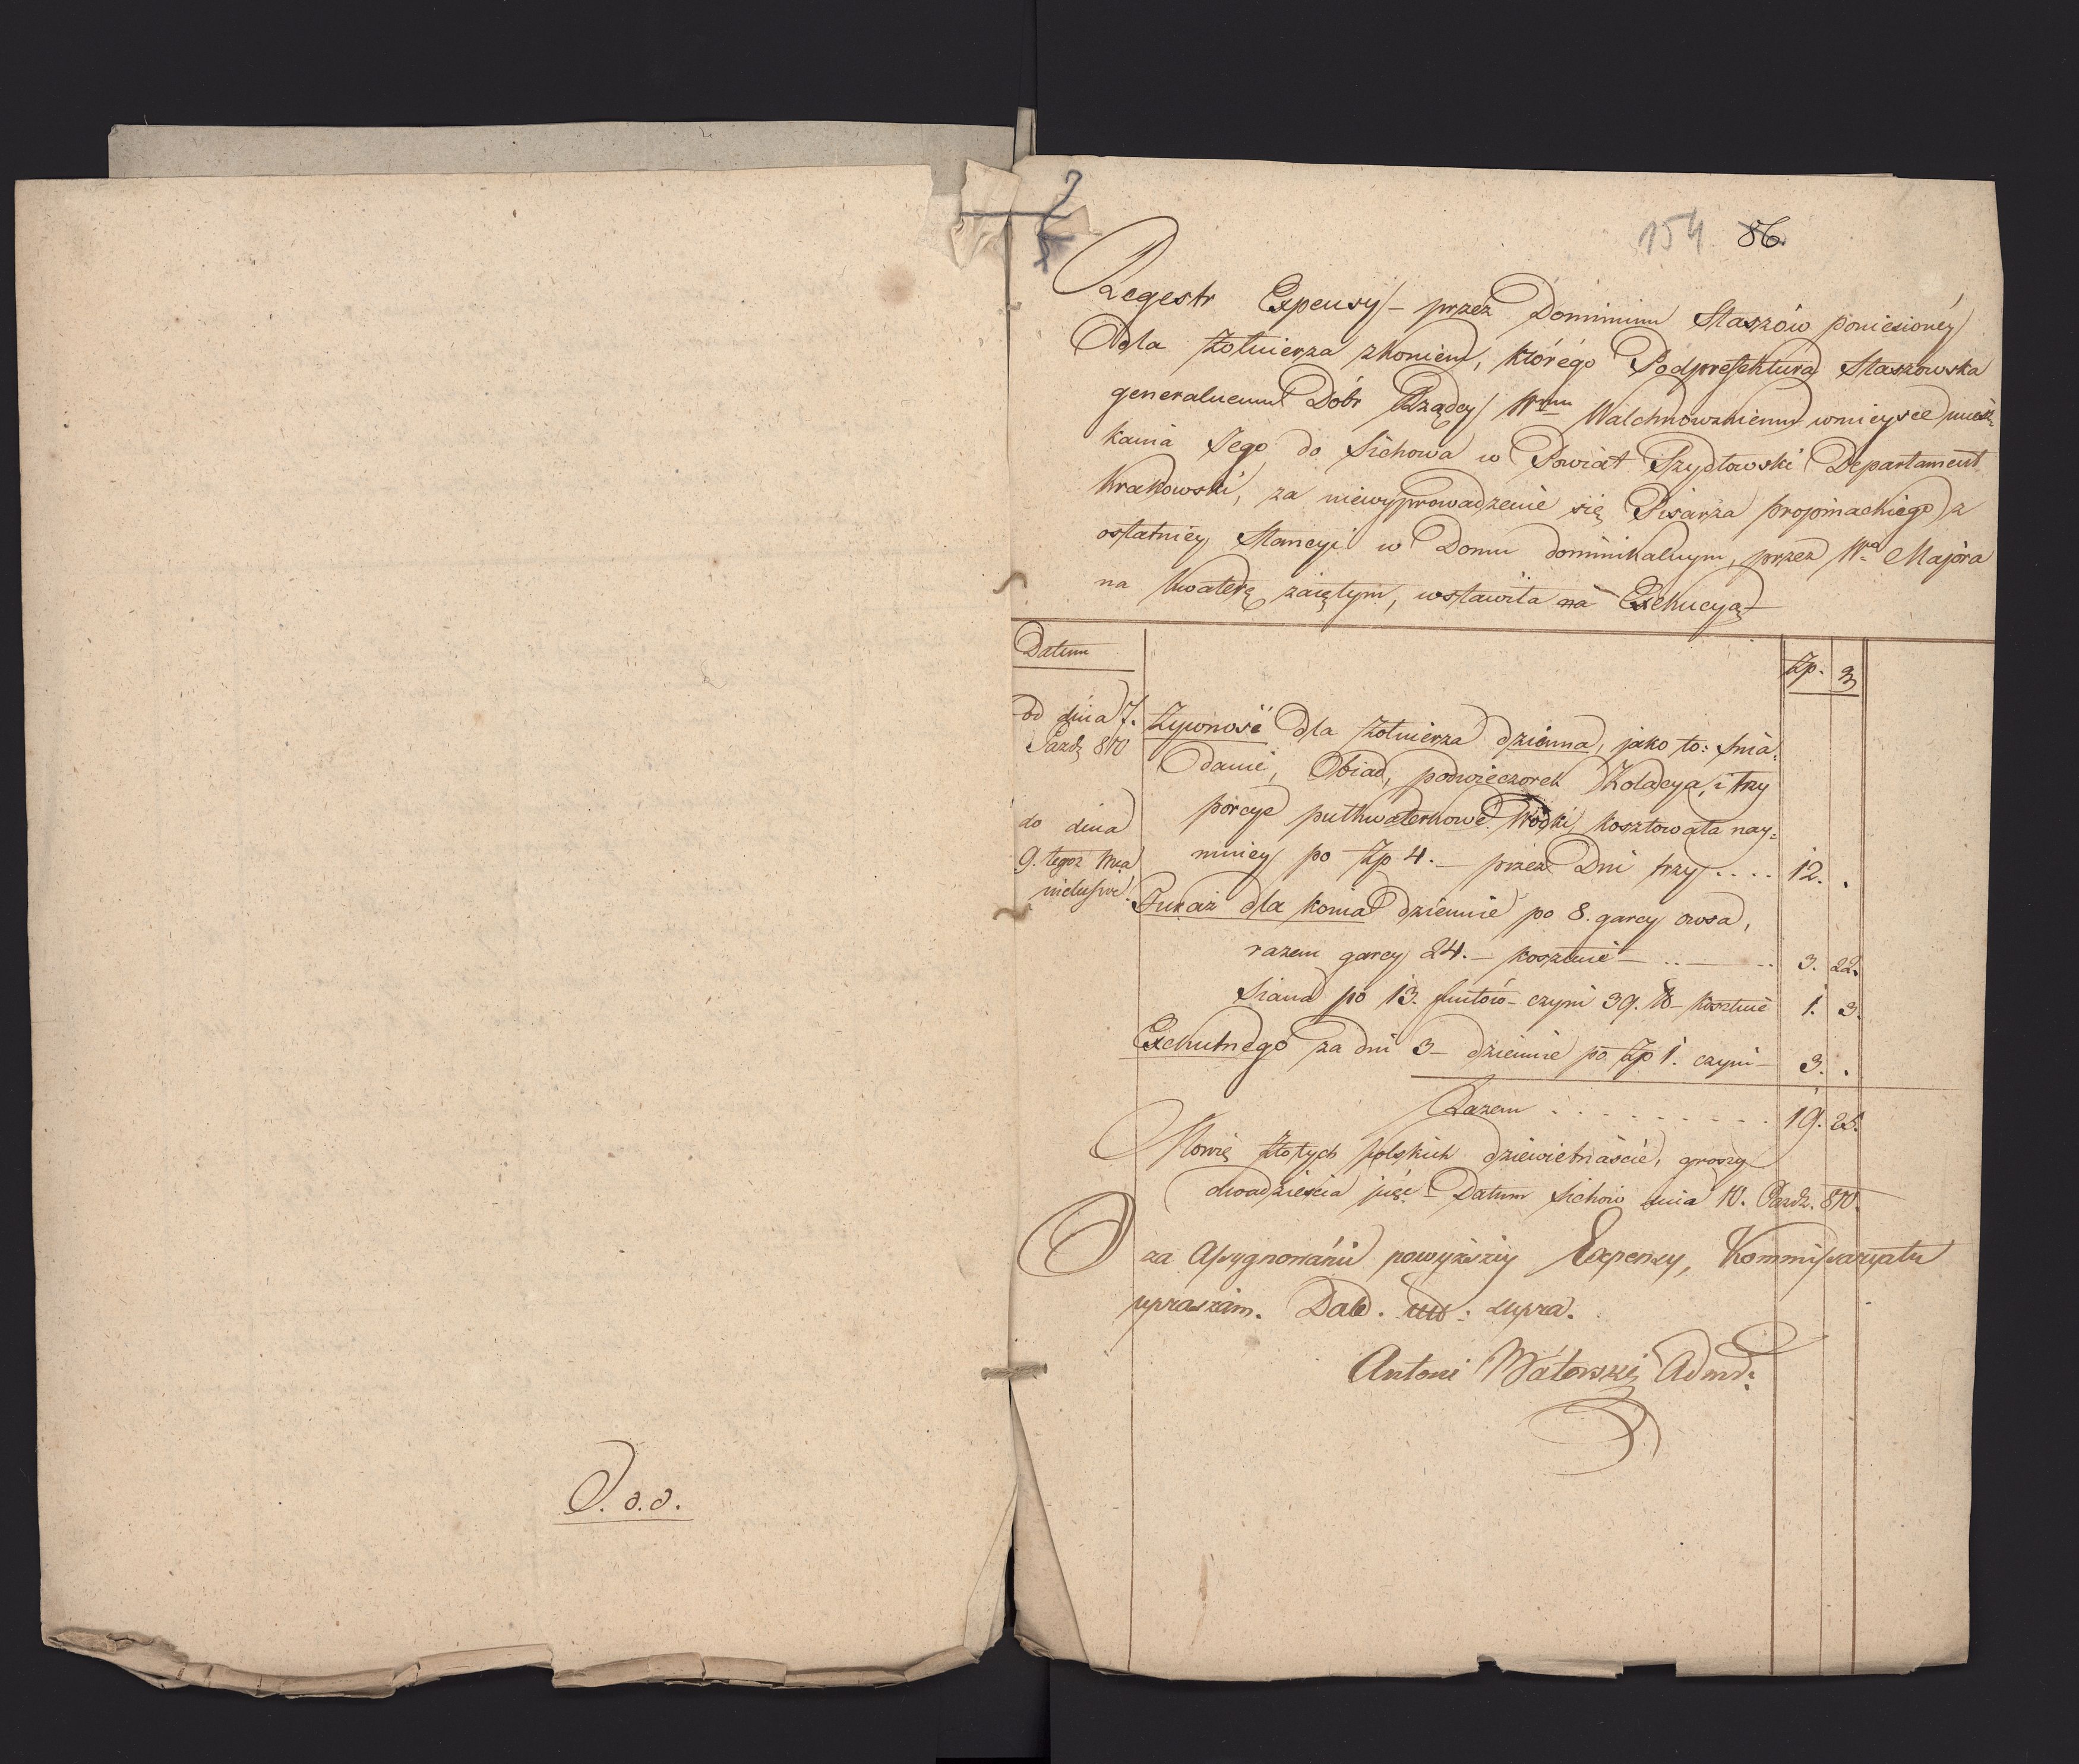 J. a. a.
154 86.
Regestr Expensy – przez Dominium Staszów poniesioney
dla Żołnierza z koniem, którégo Podprefektura Staszowska
generalnemu Dóbr Rządcy Wmu Walchnowskiemu w mieysce miesz=
kania Jego do Sichowa w Powiat Szydłowski Departament
Krakowski, za niewyprowadzenie się Pisarza propinackiego z
ostatniey Stancyi w Domu dominikalnym, przez Wo Majora
na kwaterę zaiętym, wstawiła na Exekucyą –
Datum
Zp. gr
od dnia 7. Żywność dla Żołnierza dzienna, jako to: Śnia=
Pazdz 810 danie, Obiad, podwieczorek Kolacya, i trzy
porcye pułkwaterkowe Wódki, kosztowała nay=
do dnia
9. tegoż Mca mniey po Zp 4. – przez Dni trzy .... 12. .
inclusive. Furaż dla konia dziennie po 8. garcy owsa,
razem garcy 24. – kosztuie – .. – .. 3. 22.
Siana po 13. funtów – czyni 39. ℔ – kosztuie 1. 3.
Exekutnego za dni 3 – dziennie po Zp 1. czyni – 3. .
Razem . . . . . . . . 19. 25.
Mowię Złotych polskich dziewietnaście, groszy
dwadzieścia pięć – Datum Sichów dnia 10. Pazdz. 810.
O za Assygnowanie powyższéy Expensy, Kommissaryatu
upraszam. Dato. ut : supra.
Antoni Adm: